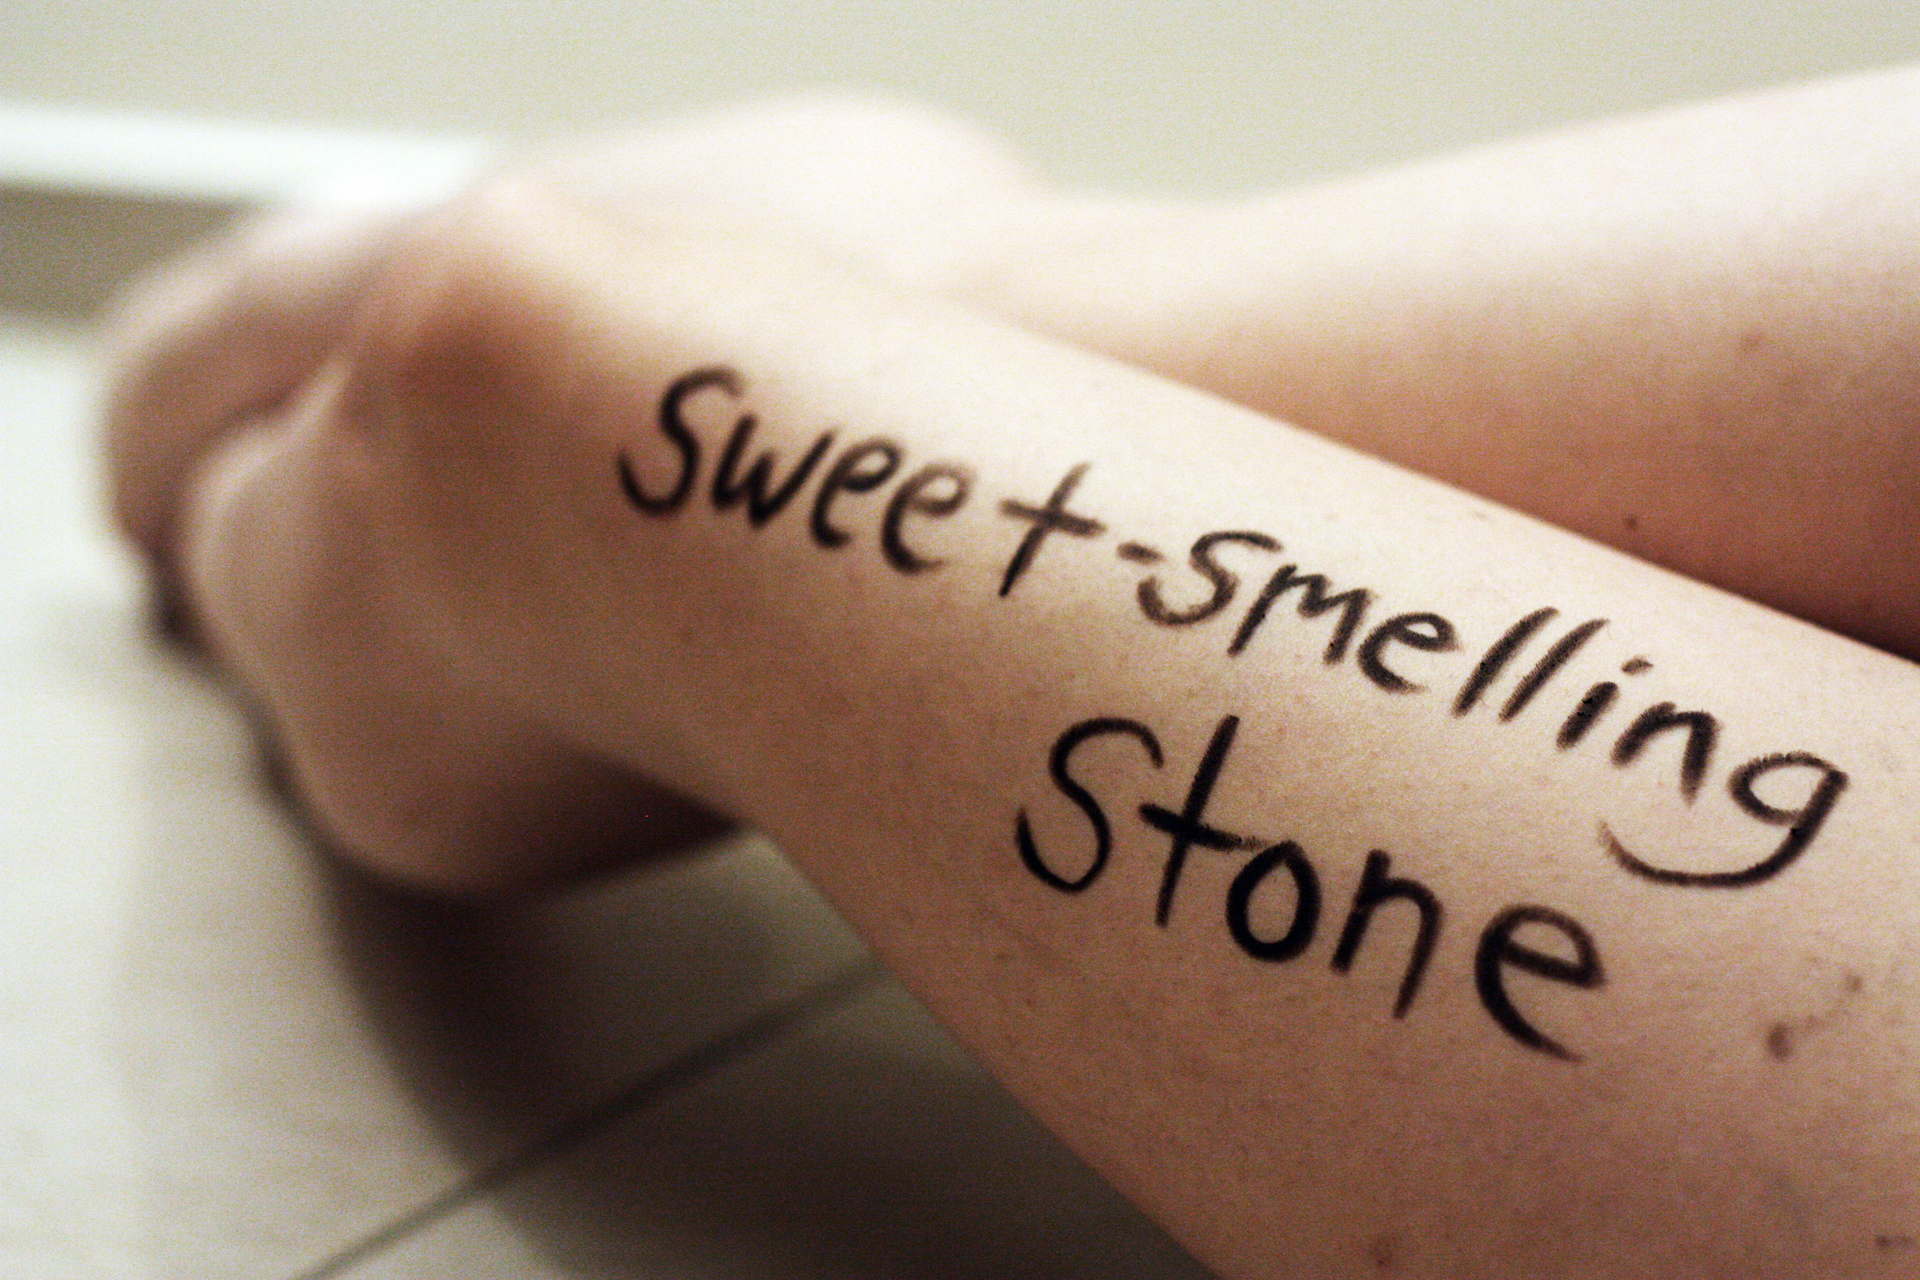 Sweet-smelling
Stone